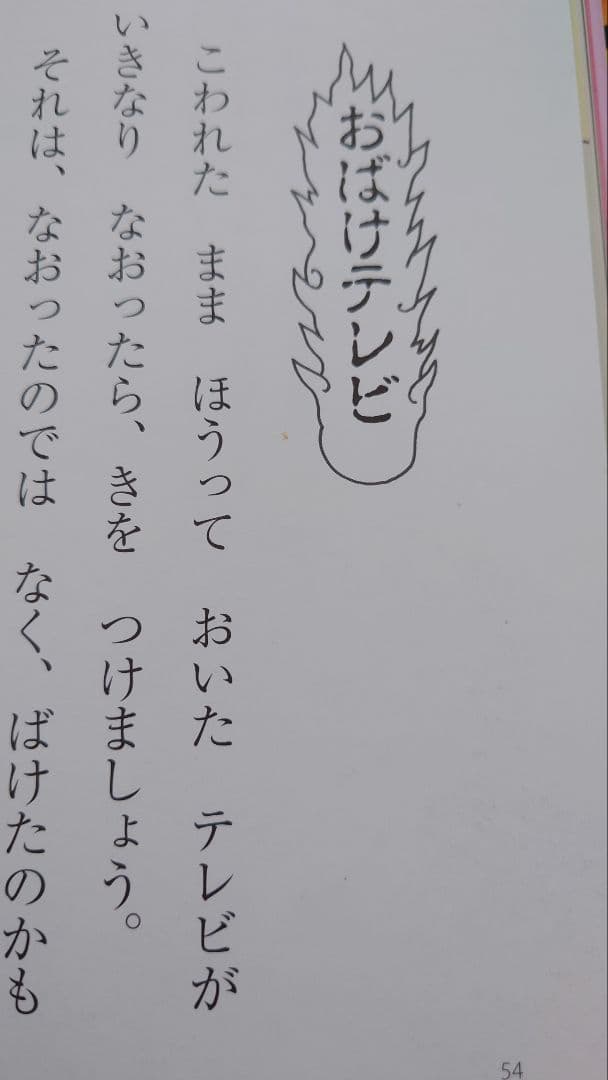 おばけテレビ
こわれた　まま　ほうって　おいた　テレビが
いきなり　なおったら、きを　つけましょう。
それは、なおったのでは　なく、ばけたのかも
54